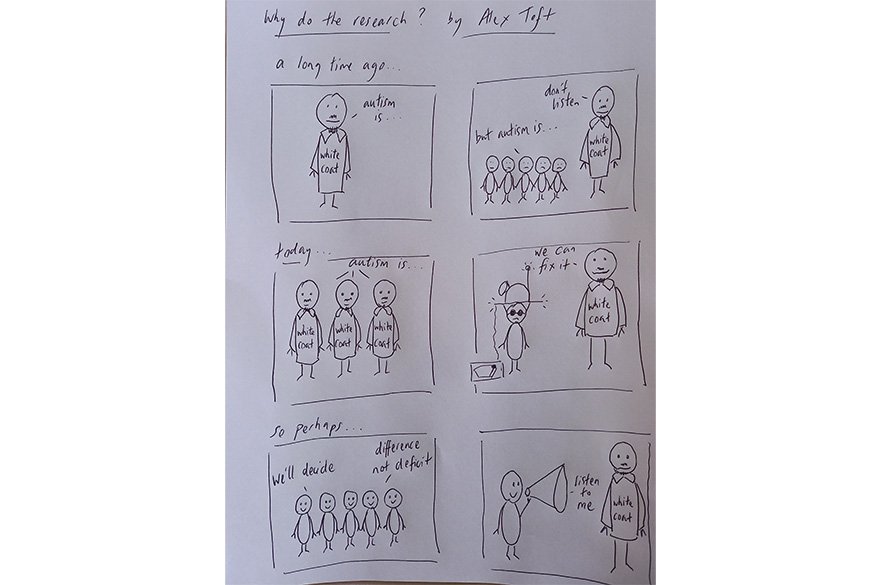 Why do the research? by Alex Toft
a long time ago...
autism
is...
white
coat
don't
listen
but autism is...
white
coat
today...
autism is...
white
coat
white
coat
white
coat
we can
fix it
white
coat
so perhaps...
we'll decide
difference
not deficit
listen
to
me
white
coat